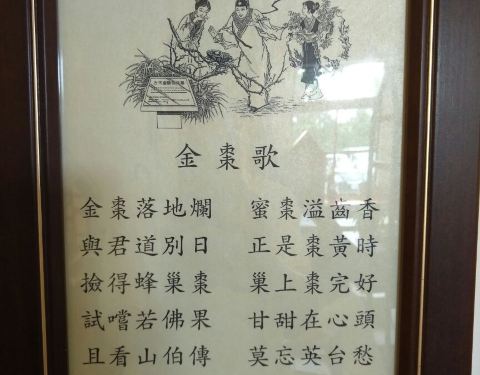 金棗歌
金棗落地爛 蜜棗溢齒香
與君道別日 正是棗黃時
撿得蜂巢棗 巢上棗完好
試嚐若佛果 甘甜在心頭
且看山伯傳 莫忘英台愁